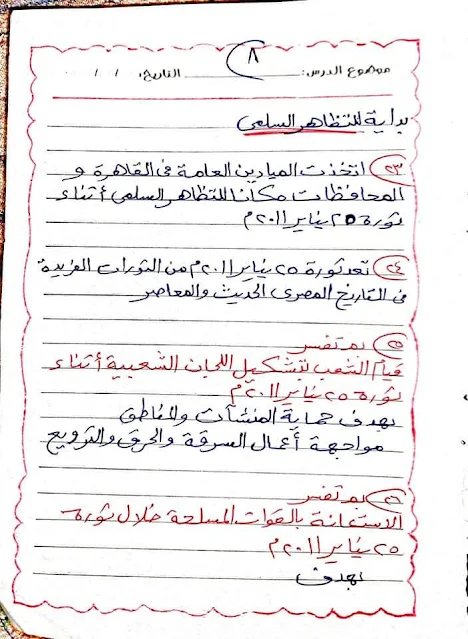 ٨
موضوع الدرس: التاريخ: / /
بداية للتظاهر السلمى
٢٣ اتخذت الميادين العامة فى القاهرة و
المحافظات مكانا للتظاهر السلمى أثناء
ثورة ٢٥ يناير ٢٠١١م
٢٤ تعد ثورة ٢٥ يناير ٢٠١١م من الثورات الفريدة
فى التاريخ المصرى الحديث والمعاصر
٢٥ بم تفسر
قيام الشعب بتشكيل اللجان الشعبية أثناء
ثورة ٢٥ يناير ٢٠١١م
بهدف حماية المنشآت والمناطق
مواجهة أعمال السرقة والحرق والترويع
٢٦ بم تفسر
الاستعانة بالقوات المسلحة خلال ثورة
٢٥ يناير ٢٠١١م
بهدف